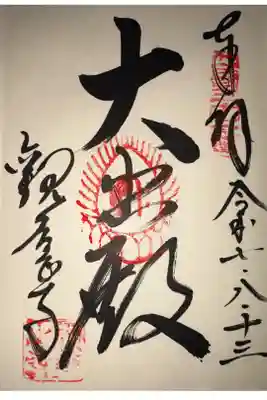 奉拝
令和七・八・十三
大悲殿
観音正寺